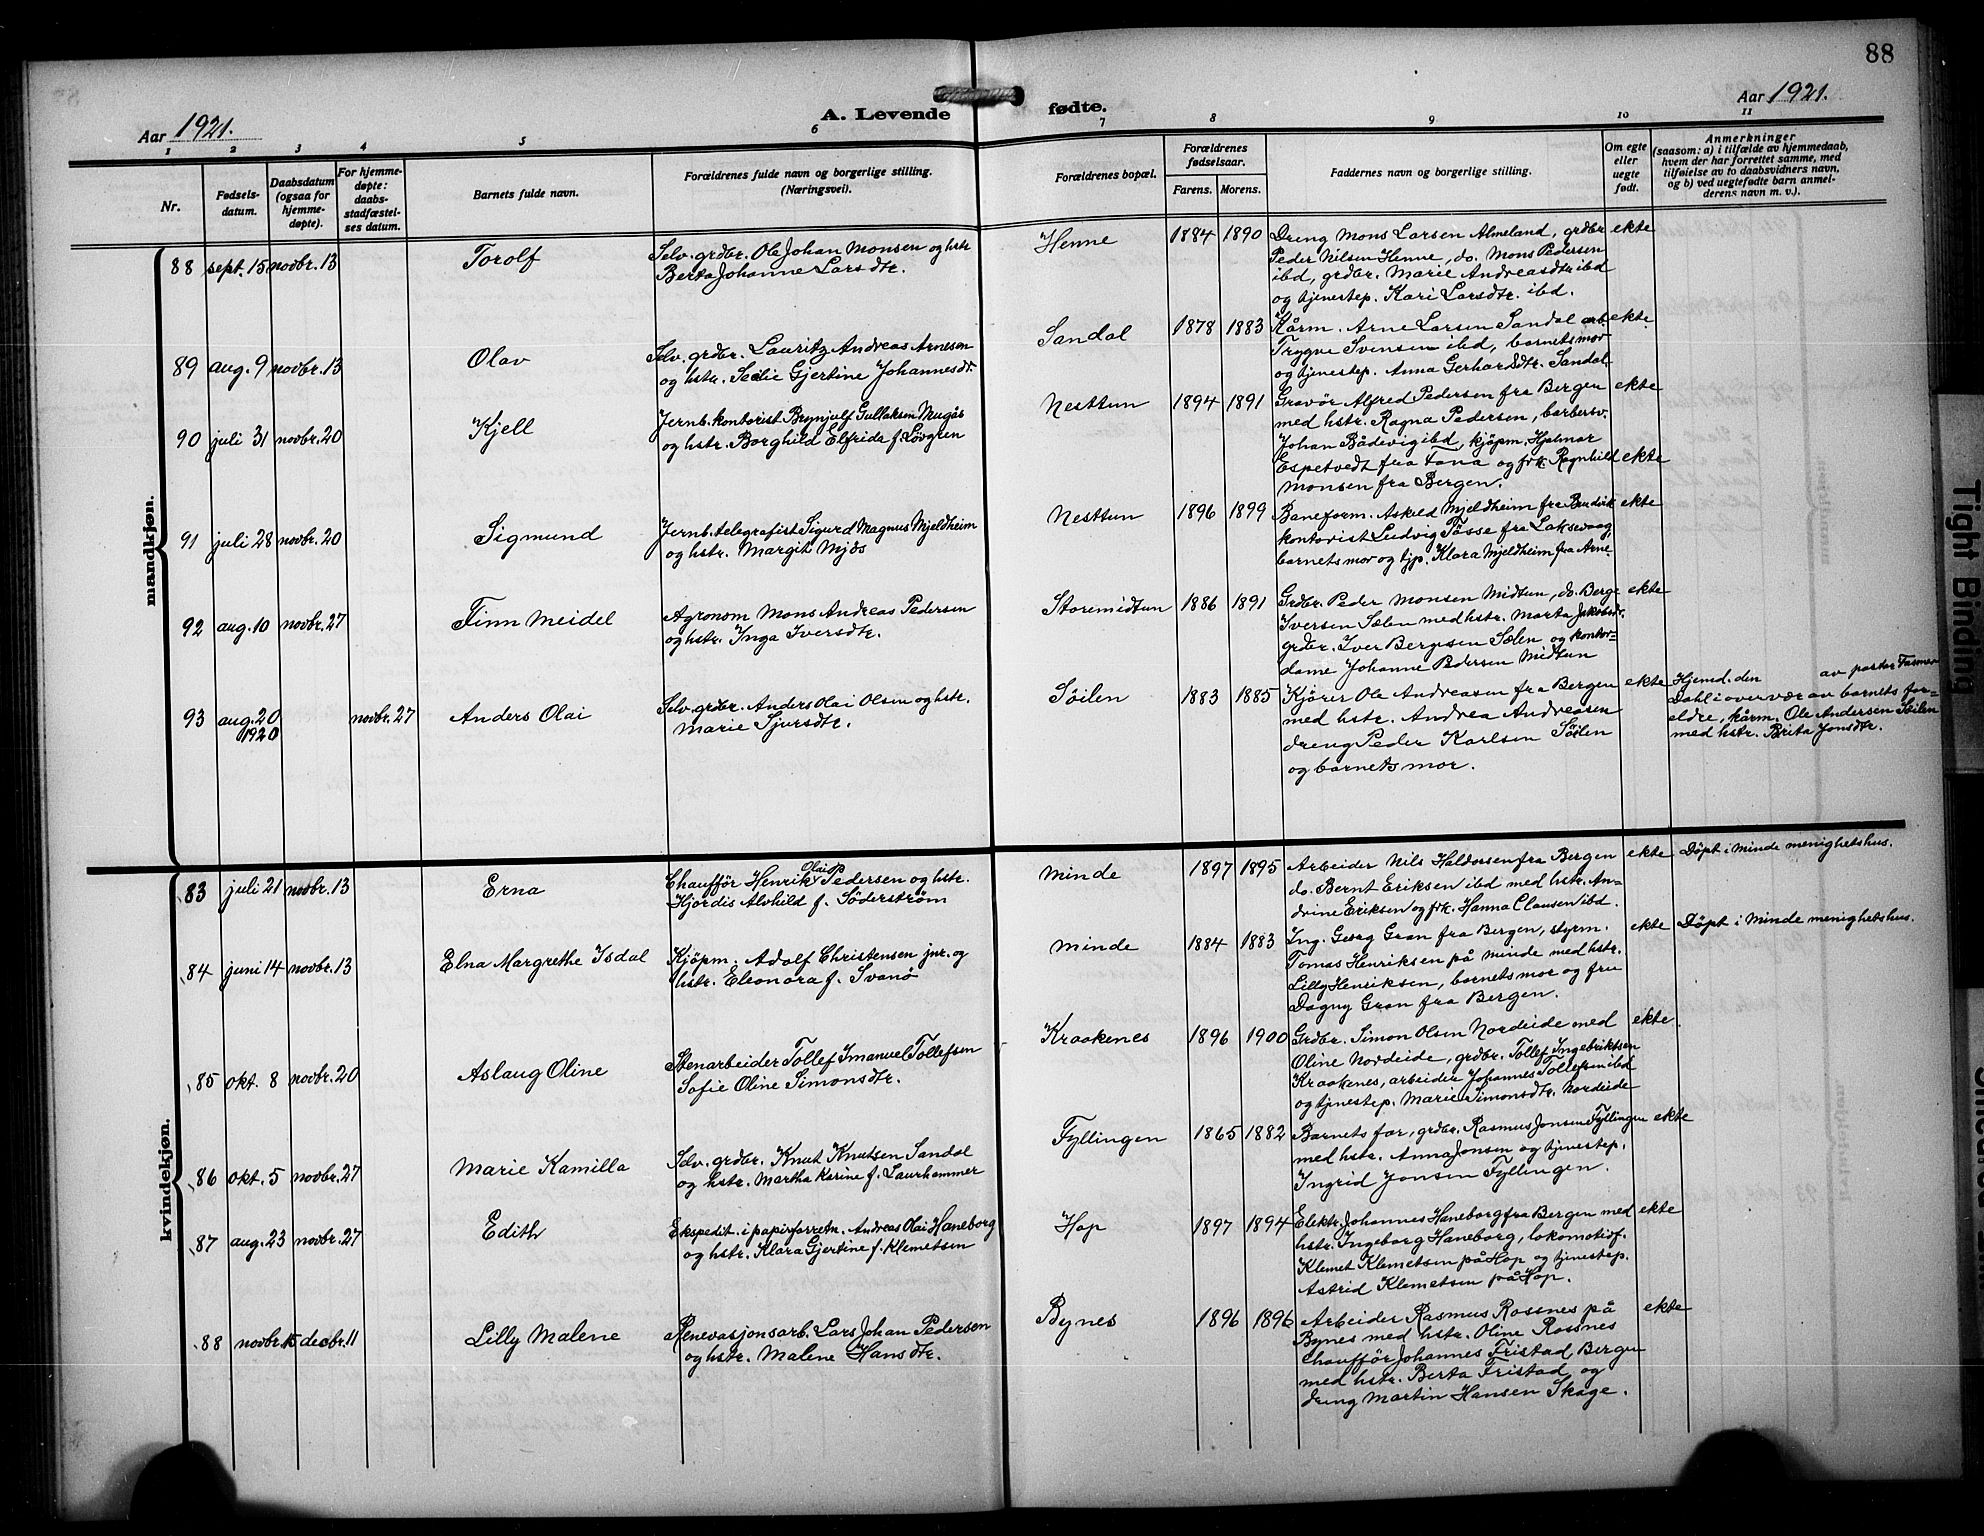 88
Aar 1921.
A. Levende fødte.
Aar 1921.
1 2 3 4 5 6 7 8 9 10 11
Nr.
Fødsels-
datum.
Daabsdatum
(ogsaa for
hjemme-
døpte).
For hjemme-
døpte:
daabs-
stadfæstel-
ses datum.
Barnets fulde navn.
Forældrenes fulde navn og borgerlige stilling.
(Næringsvei).
Forældrenes bopæl.
Forældrenes
fødselsaar.
Farens. Morens.
Faddernes navn og borgerlige stilling.
Om egte
eller
uegte
født.
Anmerkninger
(saasom: a) i tilfælde av hjemmedaab,
hvem der har forrettet samme, med
tilføielse av to daabsvidners navn,
og b) ved uegtefødte barn anmel-
derens navn m. v.).
mandkjøn.
88 sept. 15 novbr. 13 Torolf
Selv. grdbr. Ole Johan Monsen og hstr
Berta Johanne Larsdtr.
Henne 1884 1890
Dreng Mons Larsen Almeland, grdbr
Peder Nilsen Henne, do. Mons Pedersen
ibd, grdbr. Marie Andreasdtr ibd
og tjenestep. Kari Larsdtr. ibd.
ekte
89 aug. 9 novbr. 13 Olav
Selv. grdbr. Lauritz Andreas Arnesen
og hstr. Secilie Gjertine Johannesdtr.
Sandal 1878 1883
Kårm. Arne Larsen Sandal arb.
Trygve Svensen ibd, barnets mor
og tjenestep. Anna Gerhardsdtr. Sandal
ekte
90 juli 31 novbr. 20 Kjell
Jernb. kontorist Brynjulf Gullaksen Haugås
og hstr. Borghild Elfrida f. Lövgren
Nesttun 1894 1891
Gravör Alfred Pedersen fra Bergen
med hstr. Ragna Pedersen, barbersv.
Johan Bådevig ibd, kjöpm. Hjalmar
Espetvedt fra Fana og frk. Ragnhild
Monsen fra Bergen.
ekte
ekte
91 juli 28 novbr. 20 Sigmund
Jernb. telegrafist Sigurd Magnus Mjeldheim
og hstr. Margit Mjös
Nesttun 1896 1899
Baneform. Askild Mjeldheim fra
kontorist Ludvig Tösse fra Laksevaag,
barnets mor og tjp. Klara Mjeldheim fra Arne
ekte
92 aug. 10 novbr. 27 Finn Meidel
Agronom Mons Andreas Pedersen
og hstr. Inga Iversdtr.
Storemidtun 1886 1891
Grdbr. Peder Monsen Midtun, do. Berge
Iversen Sælen med hstr. Marta Jakobsdtr.
grdbr. Iver Bergesen Sælen og kontor-
dame Johanne Pedersen Midtun
ekte
93 aug. 20 1920 novbr. 27 Anders Olai
Selv. grdbr. Anders Olai Olsen og hstr.
Marie Sjursdtr.
Söilen 1883 1885
Kjörer Ole Andreasen fra Bergen
med hstr. Andrea Andreasen
dreng Peder Karlsen Söilen
og barnets mor.
ekte
Hjemd. den av pastor Fasmer
Dahl i overvær av barnets for-
eldre, kårm. Ole Andersen Söilen
med hstr. Brita Jonsdtr.
kvindekjøn.
83 juli 21 novbr. 13 Erna
Chaufför Henrik Olaisp Pedersen og hstr.
Hjördis Alvhild f. Söderström
Minde 1897 1895
Arbeider Nils Haldorsen fra Bergen
do. Bernt Eriksen ibd med hstr. An-
drine Eriksen og frk. Hanna Clausen ibd.
ekte
Döpt i Minde menighetshus.
84 juni 14 novbr. 13 Elna Margrethe Isdal
Kjöpm. Adolf Christensen jnr. og
hstr. Eleonora f. Svanö
Minde 1884 1883
Ing. Georg Gran fra Bergen, styrm.
Tomas Henriksen på Minde med hstr.
Lilly Henriksen, barnets mor og fru
Dagny Gran fra Bergen.
ekte
Döpt i Minde menighetshus.
85 okt. 8 novbr. 20 Aslaug Oline
Stenarbeider Tollef Imanuel Tollefsen
Sofie Oline Simonsdtr.
Kraakenes 1896 1900
Grdbr. Simon Olsen Nordeide med
Oline Nordeide, grdbr. Tollef Ingebriktsen
Kraakenes, arbeider Johannes Tollefsen ibd
og tjenestep. Marie Simonsdtr. Nordeide
ekte
86 okt. 5 novbr. 27 Marie Kamilla
Selv. grdbr. Knut Knutsen Sandal
og hstr. Martha Karine f. Laurhammer
Fyllingen 1865 1882
Barnets far, grdbr. Rasmus Jonsen Fyllingen
med hstr. Anna Jonsen og tjenestep.
Ingrid Jonsen Fyllingen.
ekte
87 aug. 23 novbr. 27 Edith
Ekspedit. i papirforretn. Andreas Olai Haneborg
og hstr. Klara Gjertine f. Klemetsen
Hop 1897 1894
Elektr. Johannes Haneborg fra Bergen med
hstr. Ingeborg Haneborg, lokomotivf.
Klemet Klemetsen på Hop og tjenestep.
Astrid Klemetsen på Hop.
ekte
88 novbr. 15 decbr. 11 Lilly Malene
Renovasjonsarb. Lars Johan Pedersen
og hstr. Malene Hansdtr.
Bynes 1896 1896
Arbeider Rasmus Rossnes på
Bynes med hstr. Oline Rossnes
Chaufför Johannes Fristad Bergen
med hstr. Berta Fristad og
dreng Martin Hansen Skage.
ekte
Tight Binding